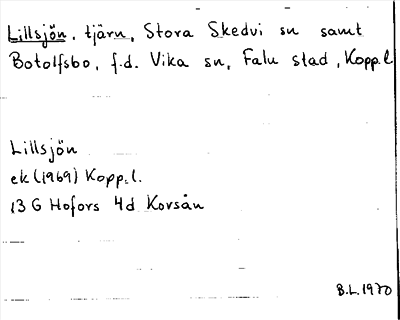 Lillsjön, tjärn, Stora Skedvi sn samt
Botolfsbo, f.d. Vika sn, Falu stad, Kopp.l
Lillsjön
ek (1969) Kopp.l.
13 G Hofors 4d Korsån
B.L. 1970